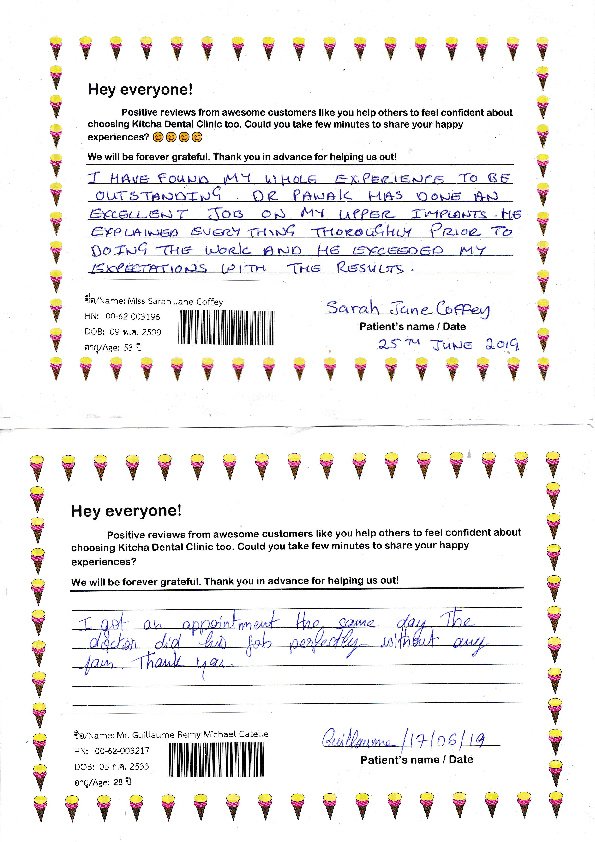 Hey everyone!
Positive reviews from awesome customers like you help others to feel confident about
choosing Kitcha Dental Clinic too. Could you take few minutes to share your happy
experiences?
We will be forever grateful. Thank you in advance for helping us out!
I HAVE FOUND MY WHOLE EXPERIENCE TO BE
OUTSTANDING. DR PAWAK HAS DONE AN
EXCELLENT JOB ON MY UPPER IMPLANTS. HE
EXPLAINED EVERYTHING THOROUGHLY PRIOR TO
DOING THE WORK AND HE EXCEEDED MY
EXPECTATIONS WITH THE RESULTS.
ชื่อ/Name: Miss Sarah Jane Coffey
HN: 00-62-003196
DOB: 09 พ.ค. 2509
อายุ/Age: 53 ปี
Sarah Jane Coffey
Patient's name / Date
25TH JUNE 2019
Hey everyone!
Positive reviews from awesome customers like you help others to feel confident about
choosing Kitcha Dental Clinic too. Could you take few minutes to share your happy
experiences?
We will be forever grateful. Thank you in advance for helping us out!
I got an appointment the same day. The
doctor did his job perfectly without any
pain. Thank you.
ชื่อ/Name: Mr. Guillaume Remy Michael
HN: 00-62-003217
DOB: 2533
อายุ/Age: 28 ปี
Guillaume /17/06/19
Patient's name / Date